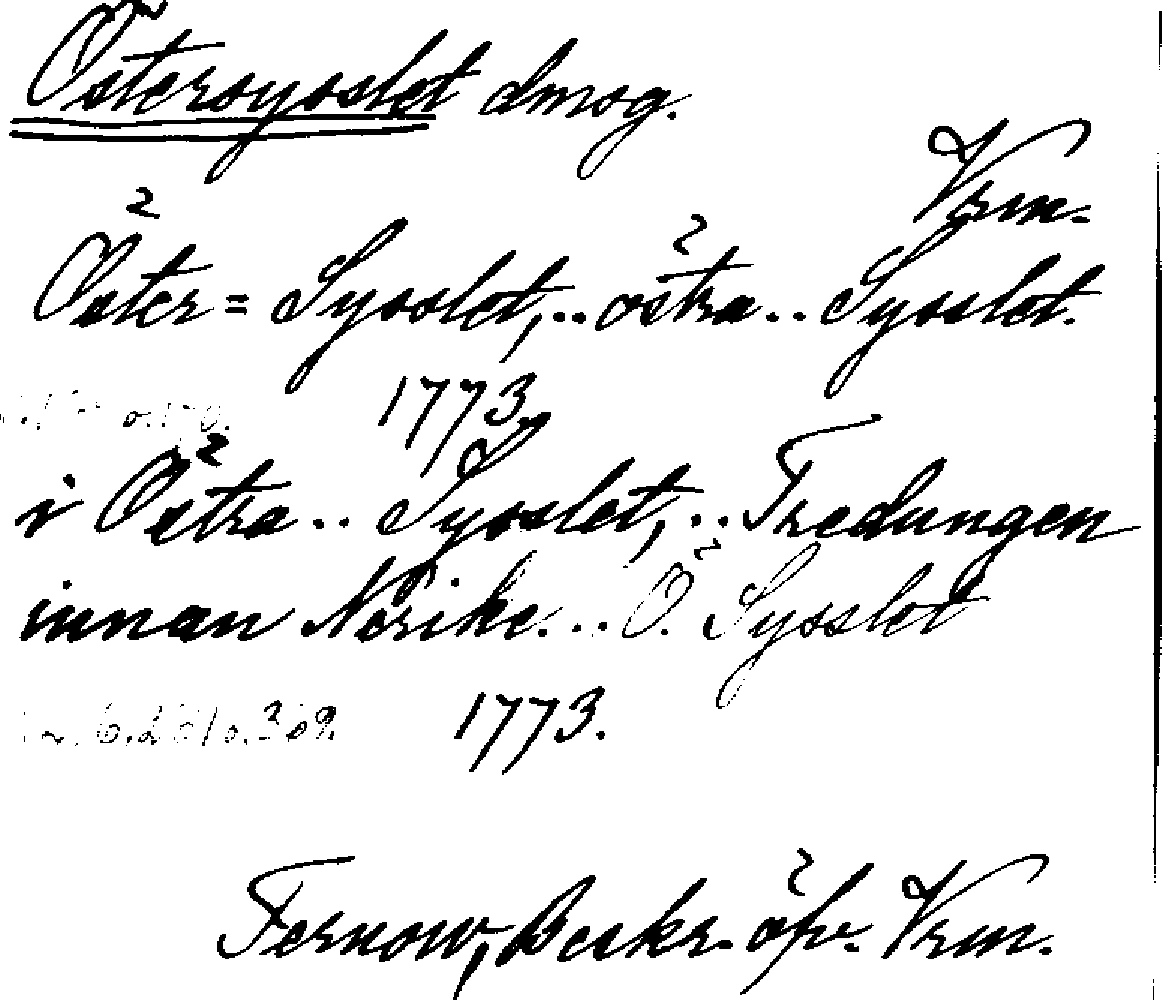 Östersysslet dmog.
Vrm.
Öster=Sysslet,.. östra.. Sysslet.
1773
i Östra.. Sysslet,.. Tredungen
innan Nerike... Ö. Sysslet
1773.
Fernow, Beskr. öfv. Vrm.